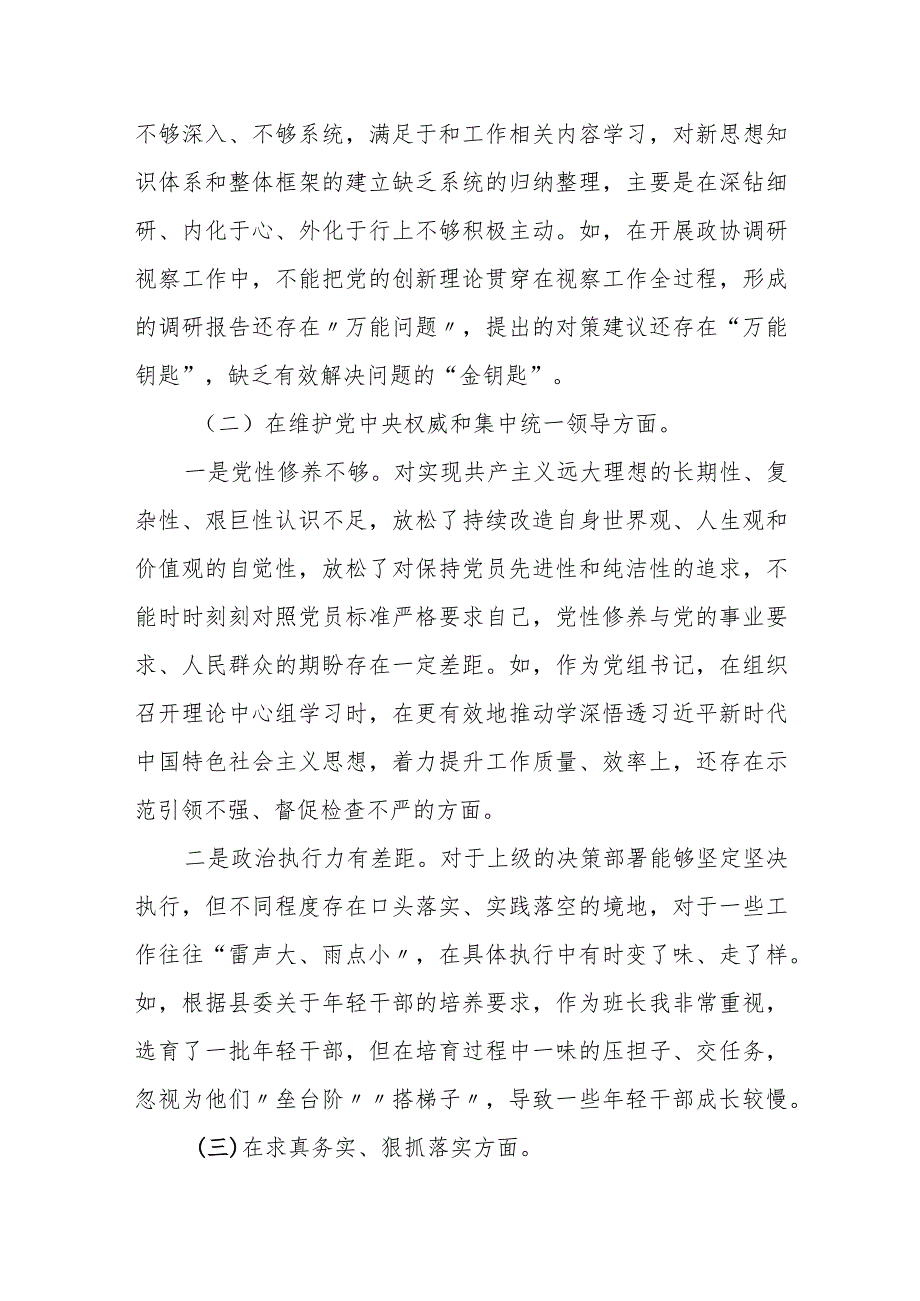 不够深入、不够系统，满足于和工作相关内容学习，对新思想知
识体系和整体框架的建立缺乏系统的归纳整理，主要是在深钻细
研、内化于心、外化于行上不够积极主动。如，在开展政协调研
视察工作中，不能把党的创新理论贯穿在视察工作全过程，形成
的调研报告还存在〃万能问题〃，提出的对策建议还存在“万能
钥匙”，缺乏有效解决问题的“金钥匙”。
（二）在维护党中央权威和集中统一领导方面。
一是党性修养不够。对实现共产主义远大理想的长期性、复
杂性、艰巨性认识不足，放松了持续改造自身世界观、人生观和
价值观的自觉性，放松了对保持党员先进性和纯洁性的追求，不
能时时刻刻对照党员标准严格要求自己，党性修养与党的事业要
求、人民群众的期盼存在一定差距。如，作为党组书记，在组织
召开理论中心组学习时，在更有效地推动学深悟透习近平新时代
中国特色社会主义思想，着力提升工作质量、效率上，还存在示
范引领不强、督促检查不严的方面。
二是政治执行力有差距。对于上级的决策部署能够坚定坚决
执行，但不同程度存在口头落实、实践落空的境地，对于一些工
作往往“雷声大、雨点小〃，在具体执行中有时变了味、走了样。
如，根据县委关于年轻干部的培养要求，作为班长我非常重视，
选育了一批年轻干部，但在培育过程中一味的压担子、交任务，
忽视为他们〃垒台阶〃〃搭梯子〃，导致一些年轻干部成长较慢。
(三)在求真务实、狠抓落实方面。